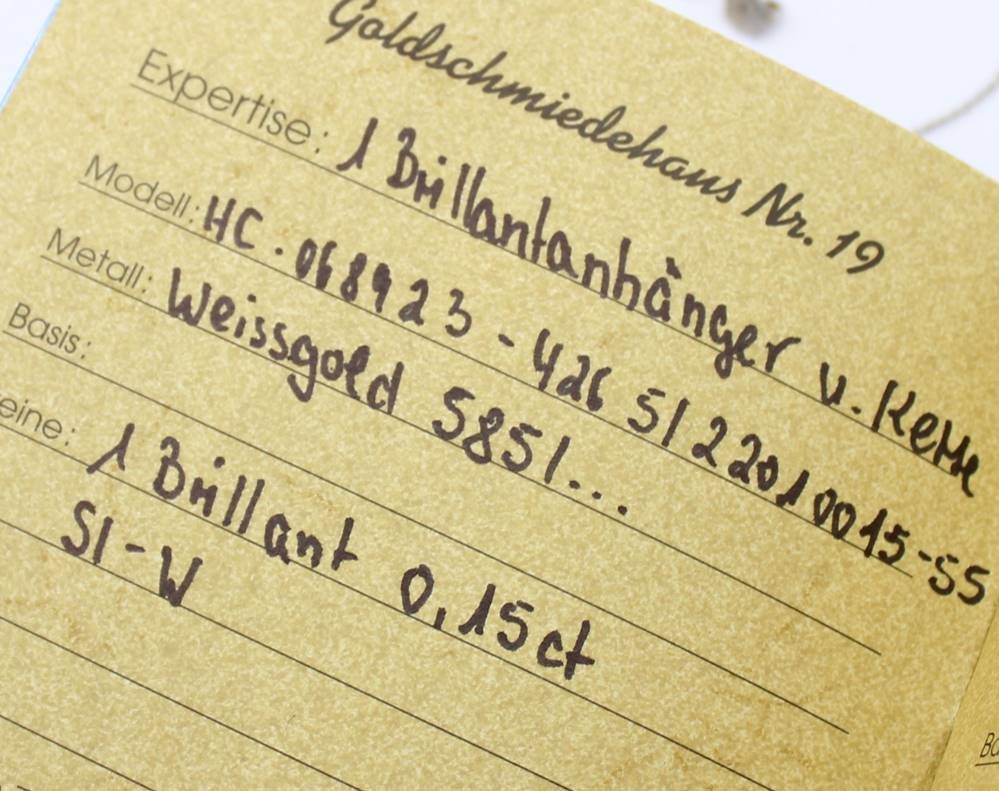 Goldschmiedehaus Nr. 19
Expertise: 1 Brillantanhänger u. Kette
Modell: HC. 068923 - 426 51 22010015-55
Metall: Weissgold 585/...
Basis:
eine: 1 Brillant 0,15ct
SI-W